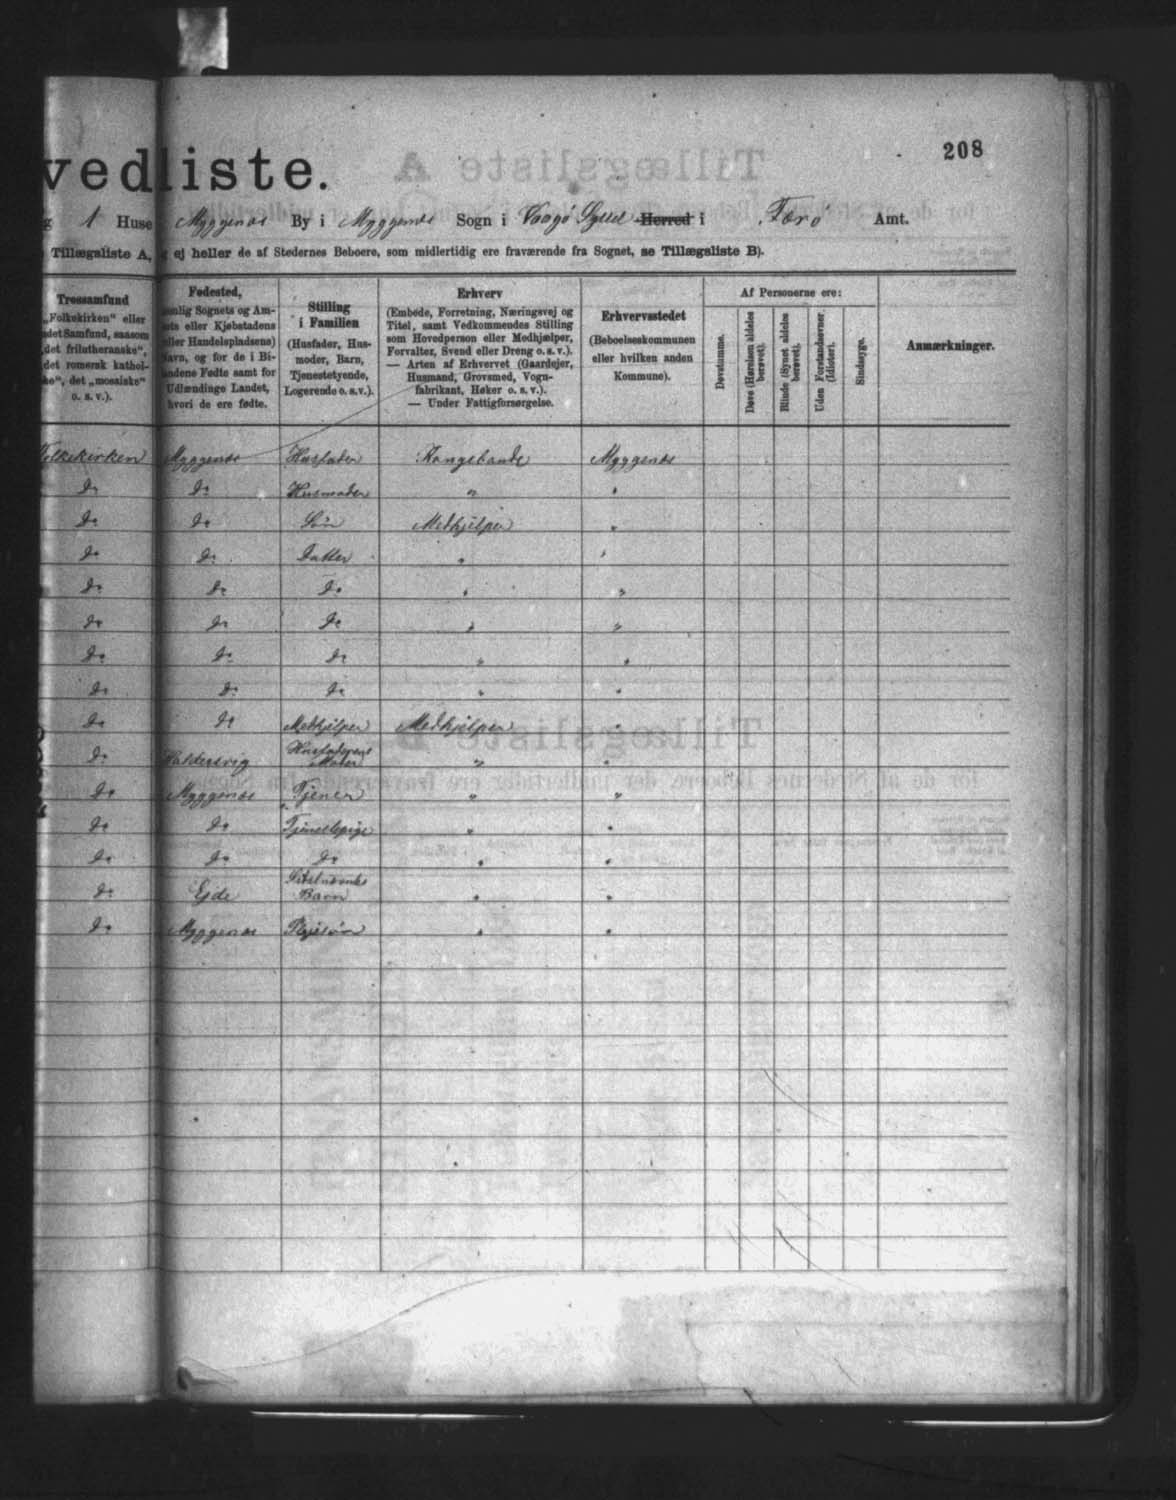 208
vedliste.
g 1 Huse Myggenæs By i Myggenæs Sogn i Vaagø Syssel Herred i Færø Amt.
Tillægsliste A, ej heller de af Stedernes Beboere, som midlertidig ere fraværende fra Sognet, se Tillægsliste B).
Trossamfund
„Folkekirken" eller
det Samfund, saasom
„det frilutheranske",
det romersk kathol-
ke", det „mosaiske"
o. s. v.).
Fødested,
nlig Sognets og Am-
ts eller Kjøbstadens
eller Handelspladsens)
Navn, og for de i Bi-
landene Fødte samt for
Udlændinge Landet,
hvori de ere fødte.
Stilling
i Familien
(Husfader, Hus-
moder, Barn,
Tjenestetyende,
Logerende o. s. v.).
Erhverv
(Embede, Forretning, Næringsvej og
Titel, samt Vedkommendes Stilling
som Hovedperson eller Medhjælper,
Forvalter, Svend eller Dreng o. s. v.).
— Arten af Erhvervet (Gaardejer,
Husmand, Grovsmed, Vogn-
fabrikant, Høker o. s. v.).
— Under Fattigforsørgelse.
Erhvervsstedet
(Beboelseskommunen
eller hvilken anden
Kommune).
Af Personerne ere:
Døvstumme.
Døve (Hørelsen aldeles
berøvet).
Blinde (Synet aldeles
berøvet).
Uden Forstandsevner
(Idioter).
Sindssyge.
Anmærkninger.
Folkekirken Myggenæs Husfader Kongsbonde Myggenæs
do do Husmoder " "
do do Søn Medhjælper "
do do Datter " "
do do do " "
do do do " "
do do do " "
do do do " "
do do Medhjelper Medhjelper "
do Haldersvig Husfaderens Moder " "
do Myggenæs Tjener " "
do do Tjenestepige " "
do do do " "
do Ejde Barn " "
do Myggenæs Plejesøn " "